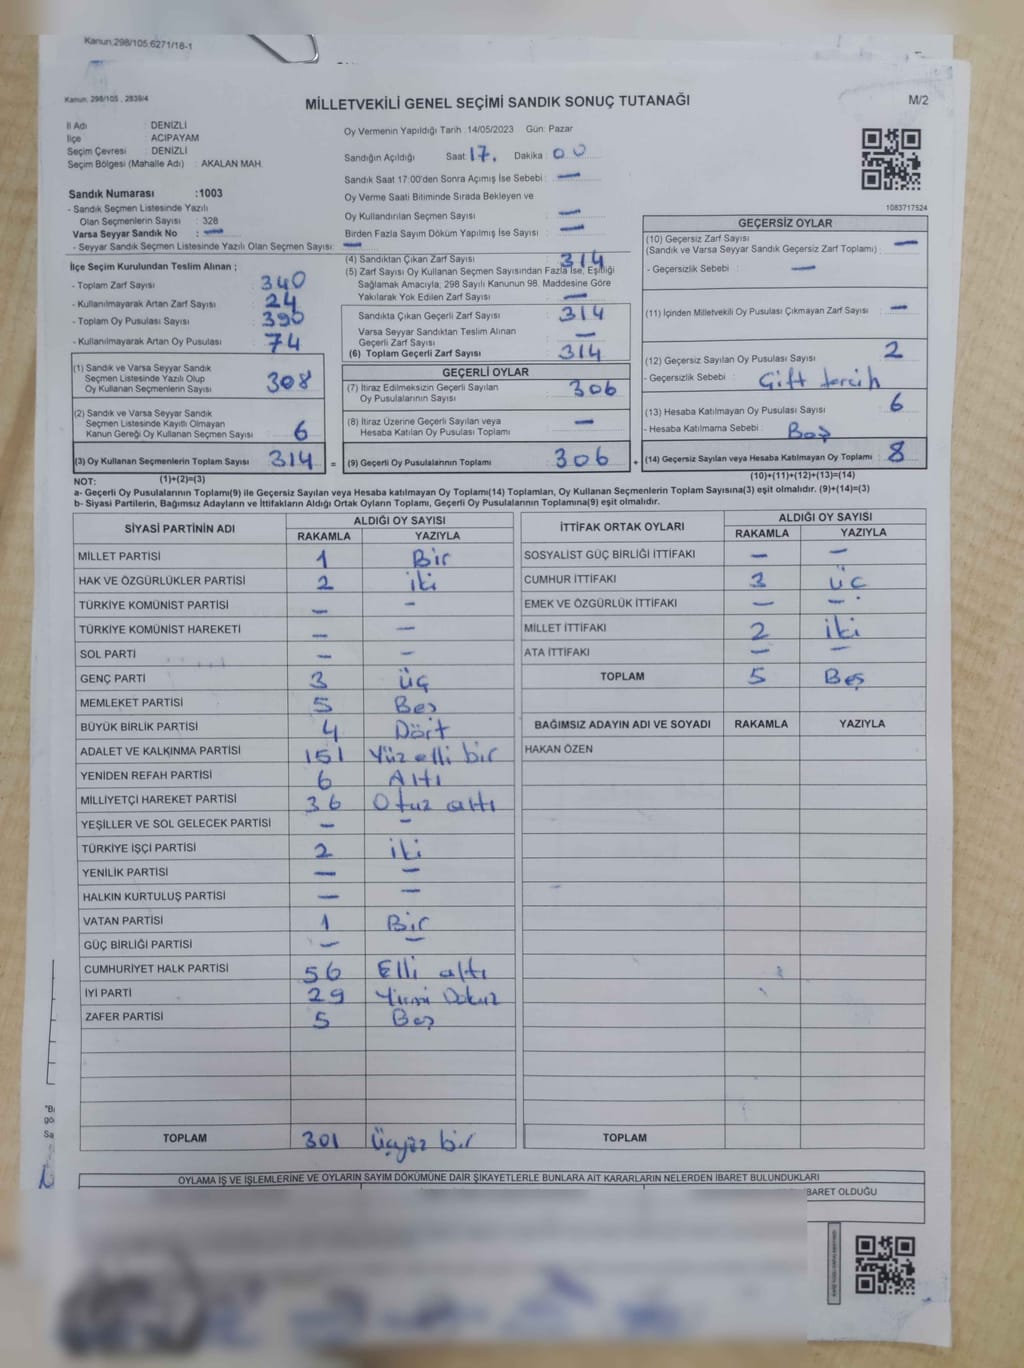 Kanun,298/105,6271/18-1
Kanun, 298/105 , 2839/4
MİLLETVEKİLİ GENEL SEÇİMİ SANDIK SONUÇ TUTANAĞI
M/2
İl Adı : DENİZLİ
İlçe : ACIPAYAM
Seçim Çevresi : DENİZLİ
Seçim Bölgesi (Mahalle Adı) : AKALAN MAH.
Sandık Numarası :1003
- Sandık Seçmen Listesinde Yazılı
Olan Seçmenlerin Sayısı : 328
Varsa Seyyar Sandık No : —
- Seyyar Sandık Seçmen Listesinde Yazılı Olan Seçmen Sayısı: —
Oy Vermenin Yapıldığı Tarih :14/05/2023 Gün: Pazar
Sandığın Açıldığı Saat: 17. Dakika : 00
Sandık Saat 17:00'den Sonra Açımış İse Sebebi : —
Oy Verme Saati Bitiminde Sırada Bekleyen ve
Oy Kullandırılan Seçmen Sayısı : —
Birden Fazla Sayım Döküm Yapılmış İse Sayısı : —
1083717524
İlçe Seçim Kurulundan Teslim Alınan ;
- Toplam Zarf Sayısı : 340
- Kullanılmayarak Artan Zarf Sayısı : 24
- Toplam Oy Pusulası Sayısı : 390
- Kullanılmayarak Artan Oy Pusulası : 74
(1) Sandık ve Varsa Seyyar Sandık
Seçmen Listesinde Yazılı Olup
Oy Kullanan Seçmenlerin Sayısı : 308
(2) Sandık ve Varsa Seyyar Sandık
Seçmen Listesinde Kayıtlı Olmayan
Kanun Gereği Oy Kullanan Seçmen Sayısı : 6
(3) Oy Kullanan Seçmenlerin Toplam Sayısı : 314
(1)+(2)=(3)
(4) Sandıktan Çıkan Zarf Sayısı : 314
(5) Zarf Sayısı Oy Kullanan Seçmen Sayısından Fazla İse, Eşitliği
Sağlamak Amacıyla, 298 Sayılı Kanunun 98. Maddesine Göre
Yakılarak Yok Edilen Zarf Sayısı : —
Sandıkta Çıkan Geçerli Zarf Sayısı : 314
Varsa Seyyar Sandıktan Teslim Alınan
Geçerli Zarf Sayısı : —
(6) Toplam Geçerli Zarf Sayısı : 314
GEÇERLİ OYLAR
(7) İtiraz Edilmeksizin Geçerli Sayılan
Oy Pusulalarının Sayısı : 306
(8) İtiraz Üzerine Geçerli Sayılan veya
Hesaba Katılan Oy Pusulası Toplamı : —
= (9) Geçerli Oy Pusulalarının Toplamı : 306 +
GEÇERSİZ OYLAR
(10) Geçersiz Zarf Sayısı
(Sandık ve Varsa Seyyar Sandık Geçersiz Zarf Toplamı) : —
- Geçersizlik Sebebi : —
(11) İçinden Milletvekili Oy Pusulası Çıkmayan Zarf Sayısı : —
(12) Geçersiz Sayılan Oy Pusulası Sayısı : 2
- Geçersizlik Sebebi : Çift tercih
(13) Hesaba Katılmayan Oy Pusulası Sayısı : 6
- Hesaba Katılmama Sebebi : Boş
(14) Geçersiz Sayılan veya Hesaba Katılmayan Oy Toplamı : 8
(10)+(11)+(12)+(13)=(14)
NOT:
a- Geçerli Oy Pusulalarının Toplamı(9) ile Geçersiz Sayılan veya Hesaba katılmayan Oy Toplamı(14) Toplamları, Oy Kullanan Seçmenlerin Toplam Sayısına(3) eşit olmalıdır. (9)+(14)=(3)
b- Siyasi Partilerin, Bağımsız Adayların ve İttifakların Aldığı Ortak Oyların Toplamı, Geçerli Oy Pusulalarının Toplamına(9) eşit olmalıdır.
SİYASİ PARTİNİN ADI ALDIĞI OY SAYISI
RAKAMLA YAZIYLA
MİLLET PARTİSİ 1 Bir
HAK VE ÖZGÜRLÜKLER PARTİSİ 2 iki
TÜRKİYE KOMÜNİST PARTİSİ — —
TÜRKİYE KOMÜNİST HAREKETİ — —
SOL PARTİ — —
GENÇ PARTİ 3 üç
MEMLEKET PARTİSİ 5 Beş
BÜYÜK BİRLİK PARTİSİ 4 Dört
ADALET VE KALKINMA PARTİSİ 151 Yüz elli bir
YENİDEN REFAH PARTİSİ 6 Altı
MİLLİYETÇİ HAREKET PARTİSİ 36 Otuz altı
YEŞİLLER VE SOL GELECEK PARTİSİ — —
TÜRKİYE İŞÇİ PARTİSİ 2 iki
YENİLİK PARTİSİ — —
HALKIN KURTULUŞ PARTİSİ — —
VATAN PARTİSİ 1 Bir
GÜÇ BİRLİĞİ PARTİSİ — —
CUMHURİYET HALK PARTİSİ 56 Elli altı
İYİ PARTİ 29 Yirmi Dokuz
ZAFER PARTİSİ 5 Beş
TOPLAM 301 Üçyüz bir
İTTİFAK ORTAK OYLARI ALDIĞI OY SAYISI
RAKAMLA YAZIYLA
SOSYALİST GÜÇ BİRLİĞİ İTTİFAKI — —
CUMHUR İTTİFAKI 3 üç
EMEK VE ÖZGÜRLÜK İTTİFAKI — —
MİLLET İTTİFAKI 2 iki
ATA İTTİFAKI — —
TOPLAM 5 Beş
BAĞIMSIZ ADAYIN ADI VE SOYADI RAKAMLA YAZIYLA
HAKAN ÖZEN
TOPLAM
OYLAMA İŞ VE İŞLEMLERİNE VE OYLARIN SAYIM DÖKÜMÜNE DAİR ŞİKAYETLERLE BUNLARA AİT KARARLARIN NELERDEN İBARET BULUNDUKLARI
BARET OLDUĞU